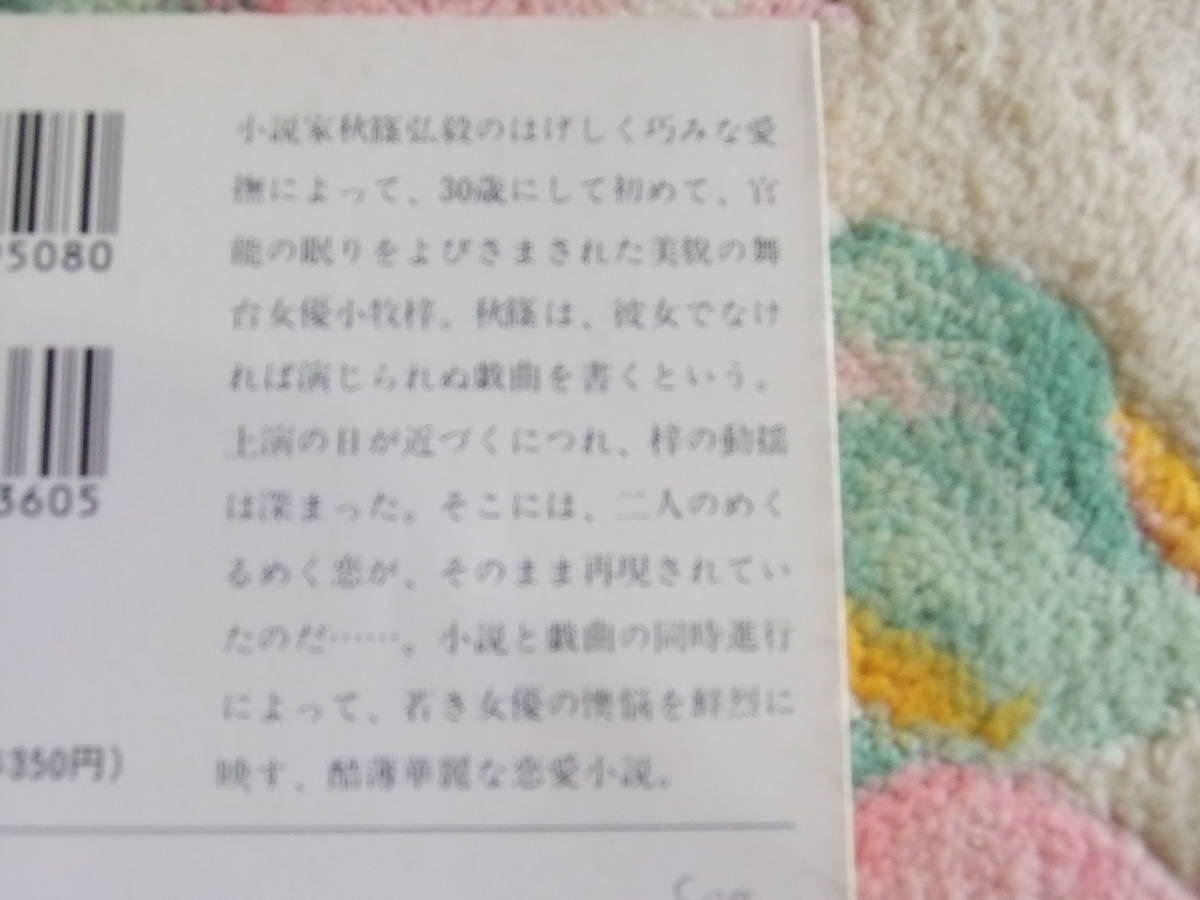 小説家秋篠弘毅のはげしく巧みな愛
撫によって、30歳にして初めて、官
能の眠りをよびさまされた美貌の舞
台女優小牧梓。秋篠は、彼女でなけ
れば演じられぬ戯曲を書くという。
上演の日が近づくにつれ、梓の動揺
は深まった。そこには、二人のめく
るめく恋が、そのまま再現されてい
たのだ……。小説と戯曲の同時進行
によって、若き女優の懊悩を鮮烈に
映す、酷薄華麗な恋愛小説。
95080
3605
350円)